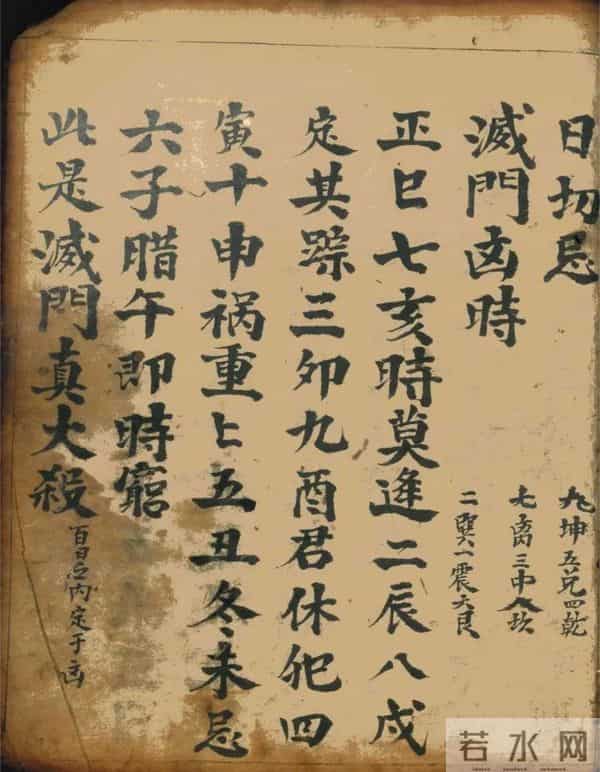 日切忌
九坤五兑四乾
滅門凶時
七离三中八坎
二巽一震六艮
正巳七亥時莫逢二辰八戍
定其踪三卯九酉君休犯四
寅十申祸重〻五丑冬未忌
六子腊午即時窮
此是滅門真大殺 百日之内定于凶
若水网